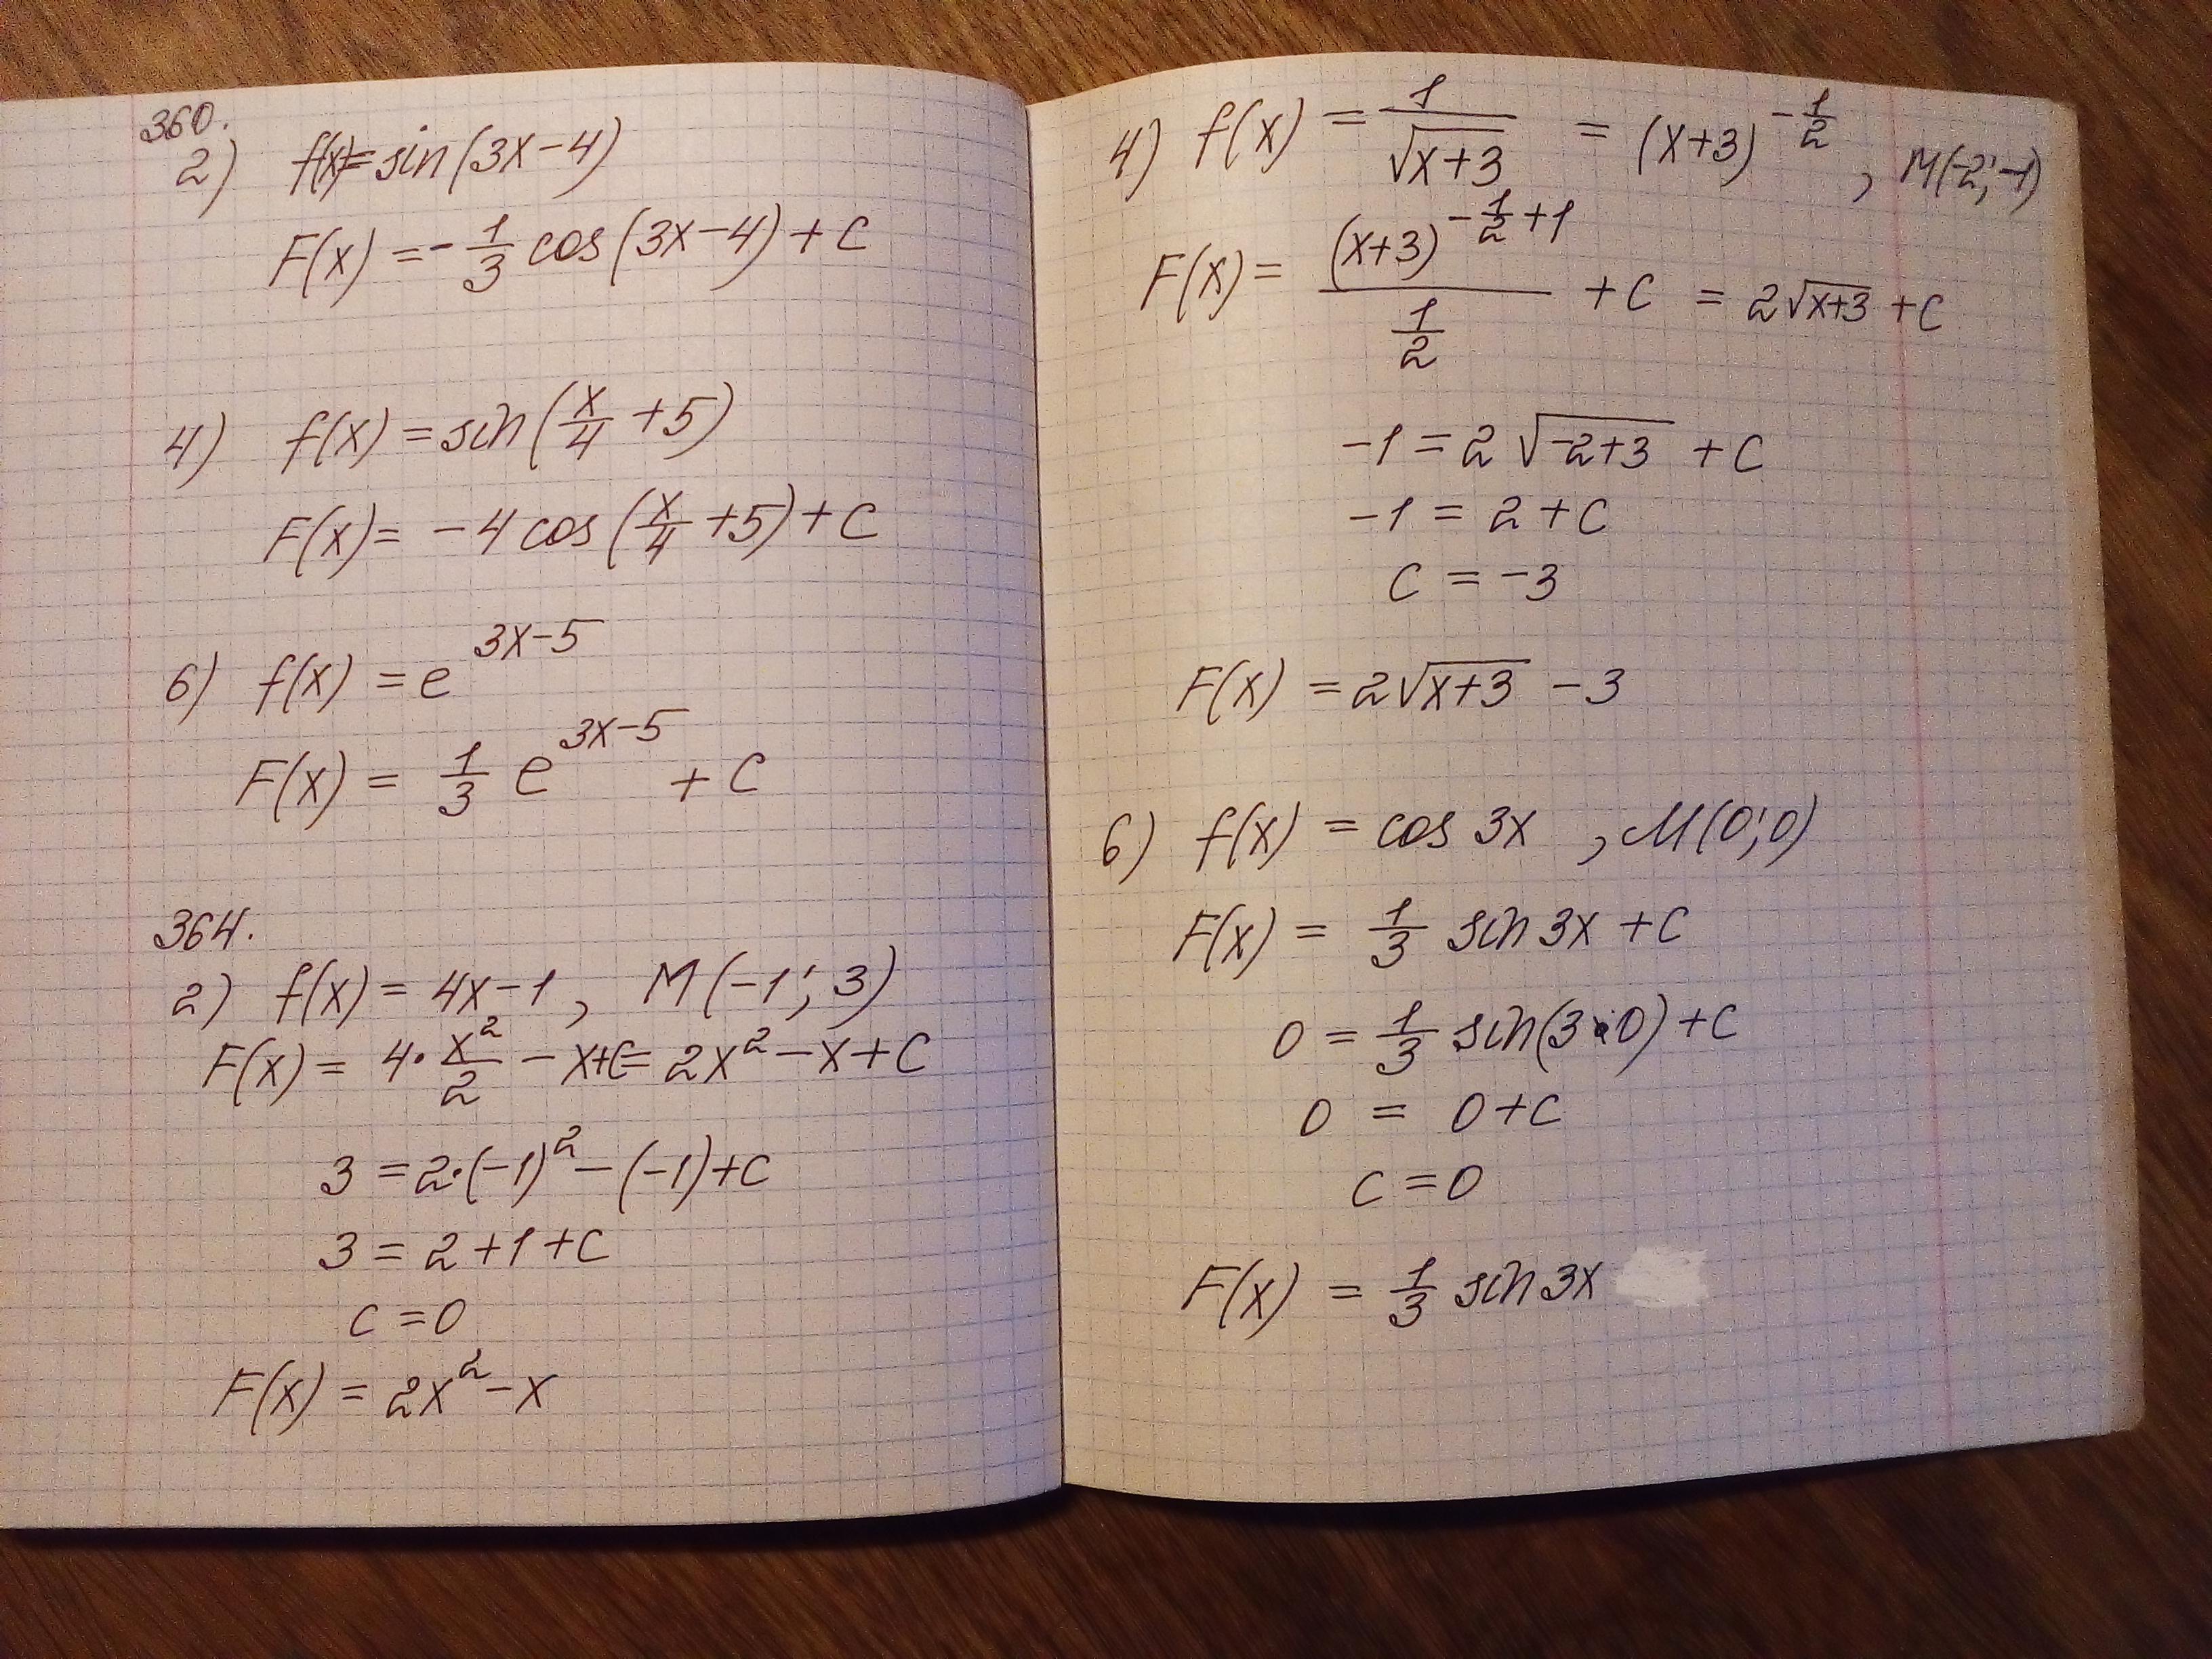 360.
2) f(x)=sin(3x-4)
F(x)=-1/3 cos(3x-4)+C
4) f(x)=sin(x/4+5)
F(x)=-4cos(x/4+5)+C
6) f(x)=e^(3x-5)
F(x)=1/3 e^(3x-5)+C
364.
2) f(x)=4x-1, M(-1;3)
F(x)=4·x²/2-x+C=2x²-x+C
3=2·(-1)²-(-1)+C
3=2+1+C
C=0
F(x)=2x²-x
4) f(x)=1/√(x+3)=(x+3)^(-1/2), M(-2;-1)
F(x)=(x+3)^(-1/2+1)/(1/2)+C=2√(x+3)+C
-1=2√(-2+3)+C
-1=2+C
C=-3
F(x)=2√(x+3)-3
6) f(x)=cos 3x, M(0;0)
F(x)=1/3 sin 3x+C
0=1/3 sin(3·0)+C
0=0+C
C=0
F(x)=1/3 sin 3x